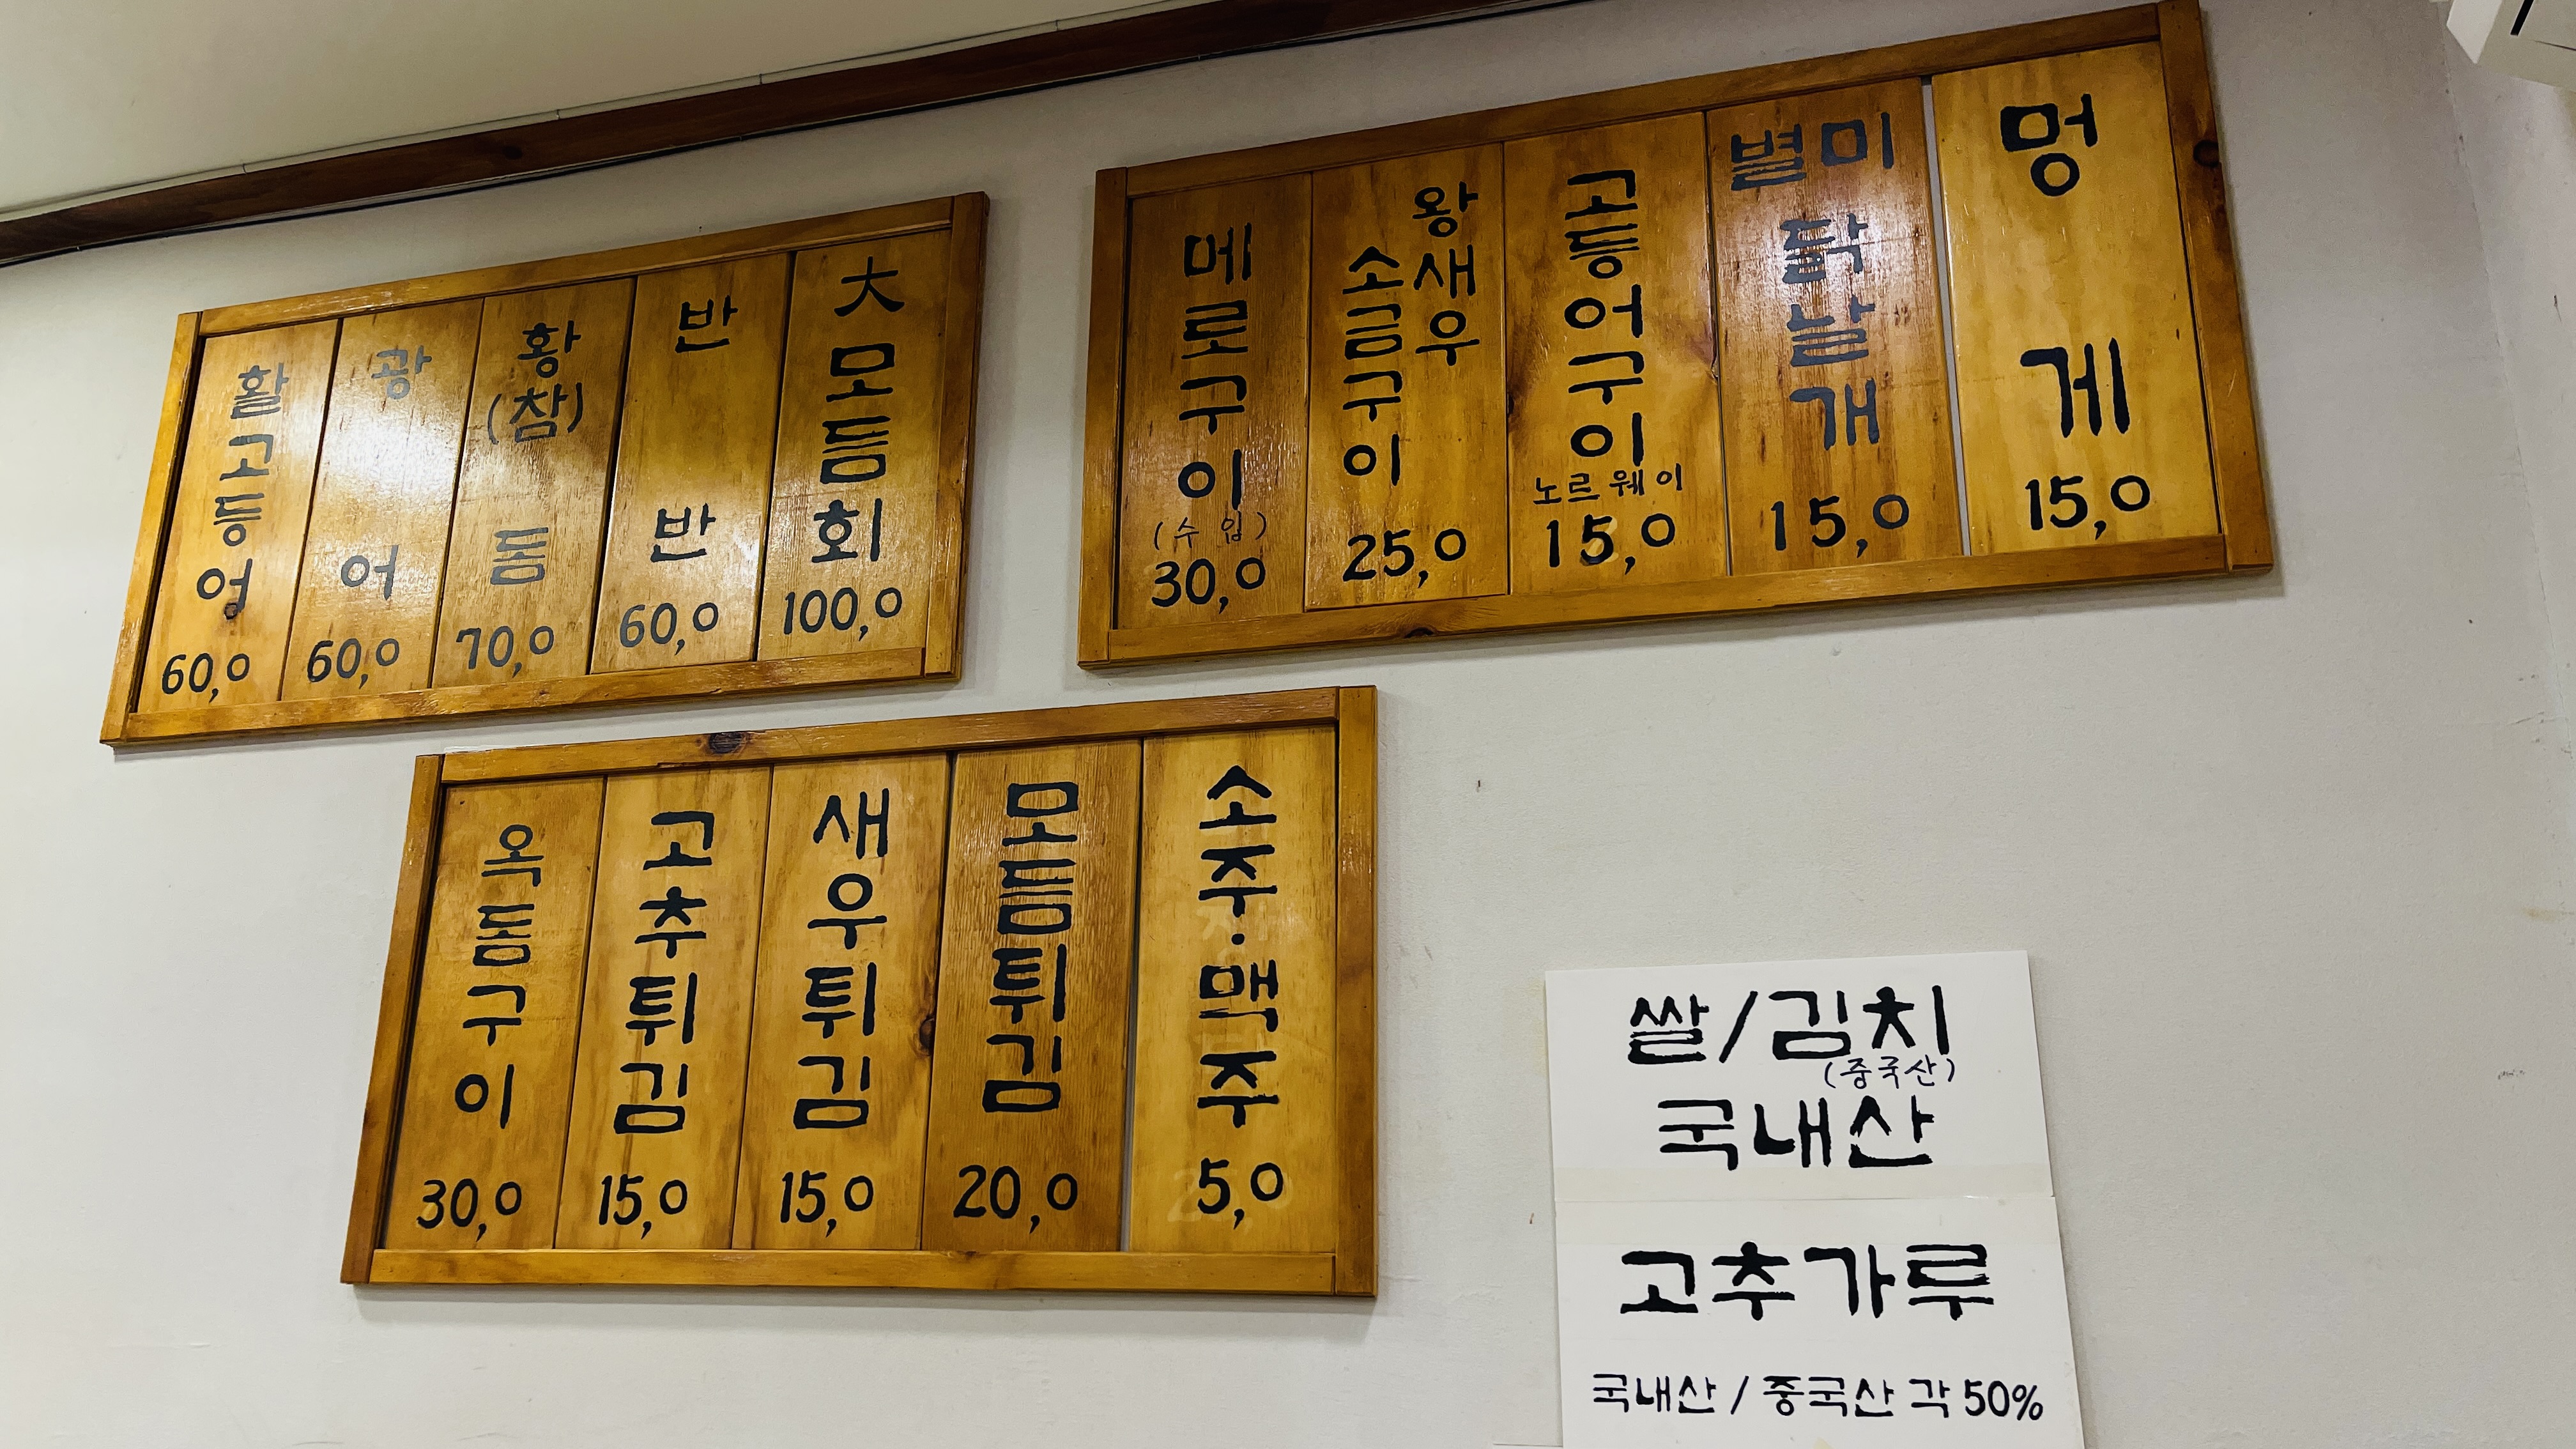 활고등어
60,0
광어
60,0
황(참)돔
70,0
반반
60,0
大모듬회
100,0
메로구이
(수입)
30,0
왕새우
소금구이
25,0
고등어구이
노르웨이
15,0
별미
닭날개
15,0
멍게
15,0
옥돔구이
30,0
고추튀김
15,0
새우튀김
15,0
모듬튀김
20,0
소주·맥주
5,0
쌀/김치
(중국산)
국내산
고추가루
국내산/중국산 각 50%